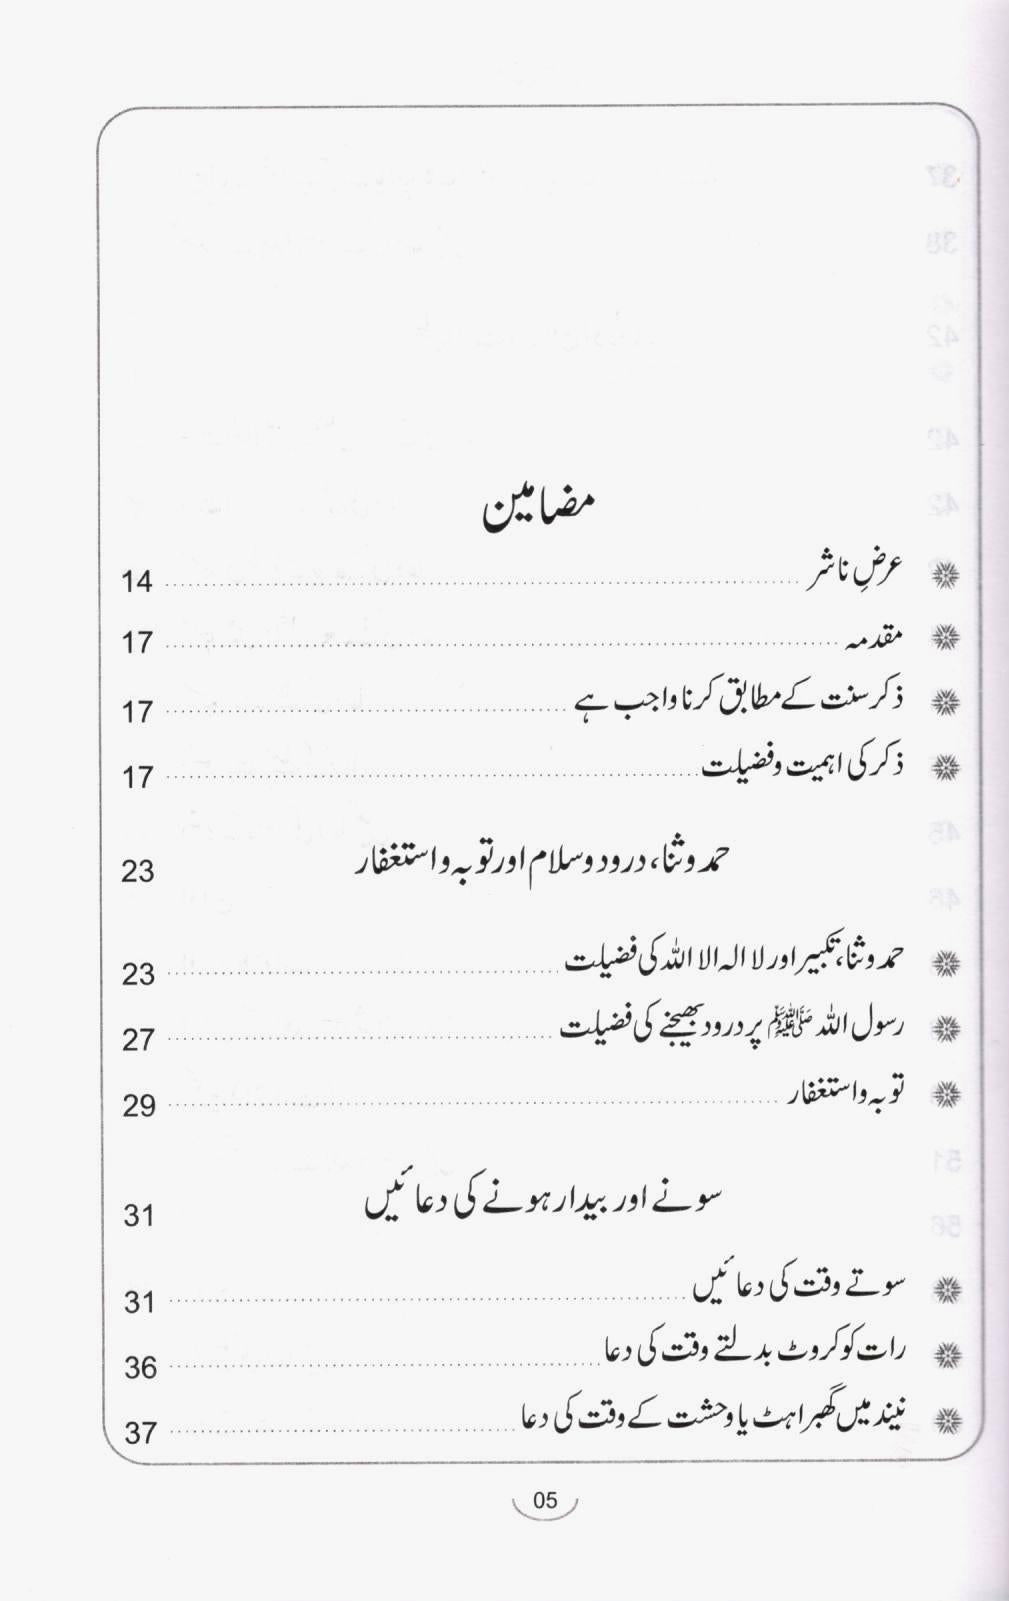 مضامین
عرضِ ناشر ........ 14
مقدمہ ........ 17
ذکر سنت کے مطابق کرنا واجب ہے ........ 17
ذکر کی اہمیت و فضیلت ........ 17
حمد و ثنا، درود و سلام اور توبہ و استغفار 23
حمد و ثنا، تکبیر اور لا الہ الا اللہ کی فضیلت ........ 23
رسول اللہ ﷺ پر درود بھیجنے کی فضیلت ........ 27
توبہ و استغفار ........ 29
سونے اور بیدار ہونے کی دعائیں 31
سوتے وقت کی دعائیں ........ 31
رات کو کروٹ بدلتے وقت کی دعا ........ 36
نیند میں گھبراہٹ یا وحشت کے وقت کی دعا ........ 37
05